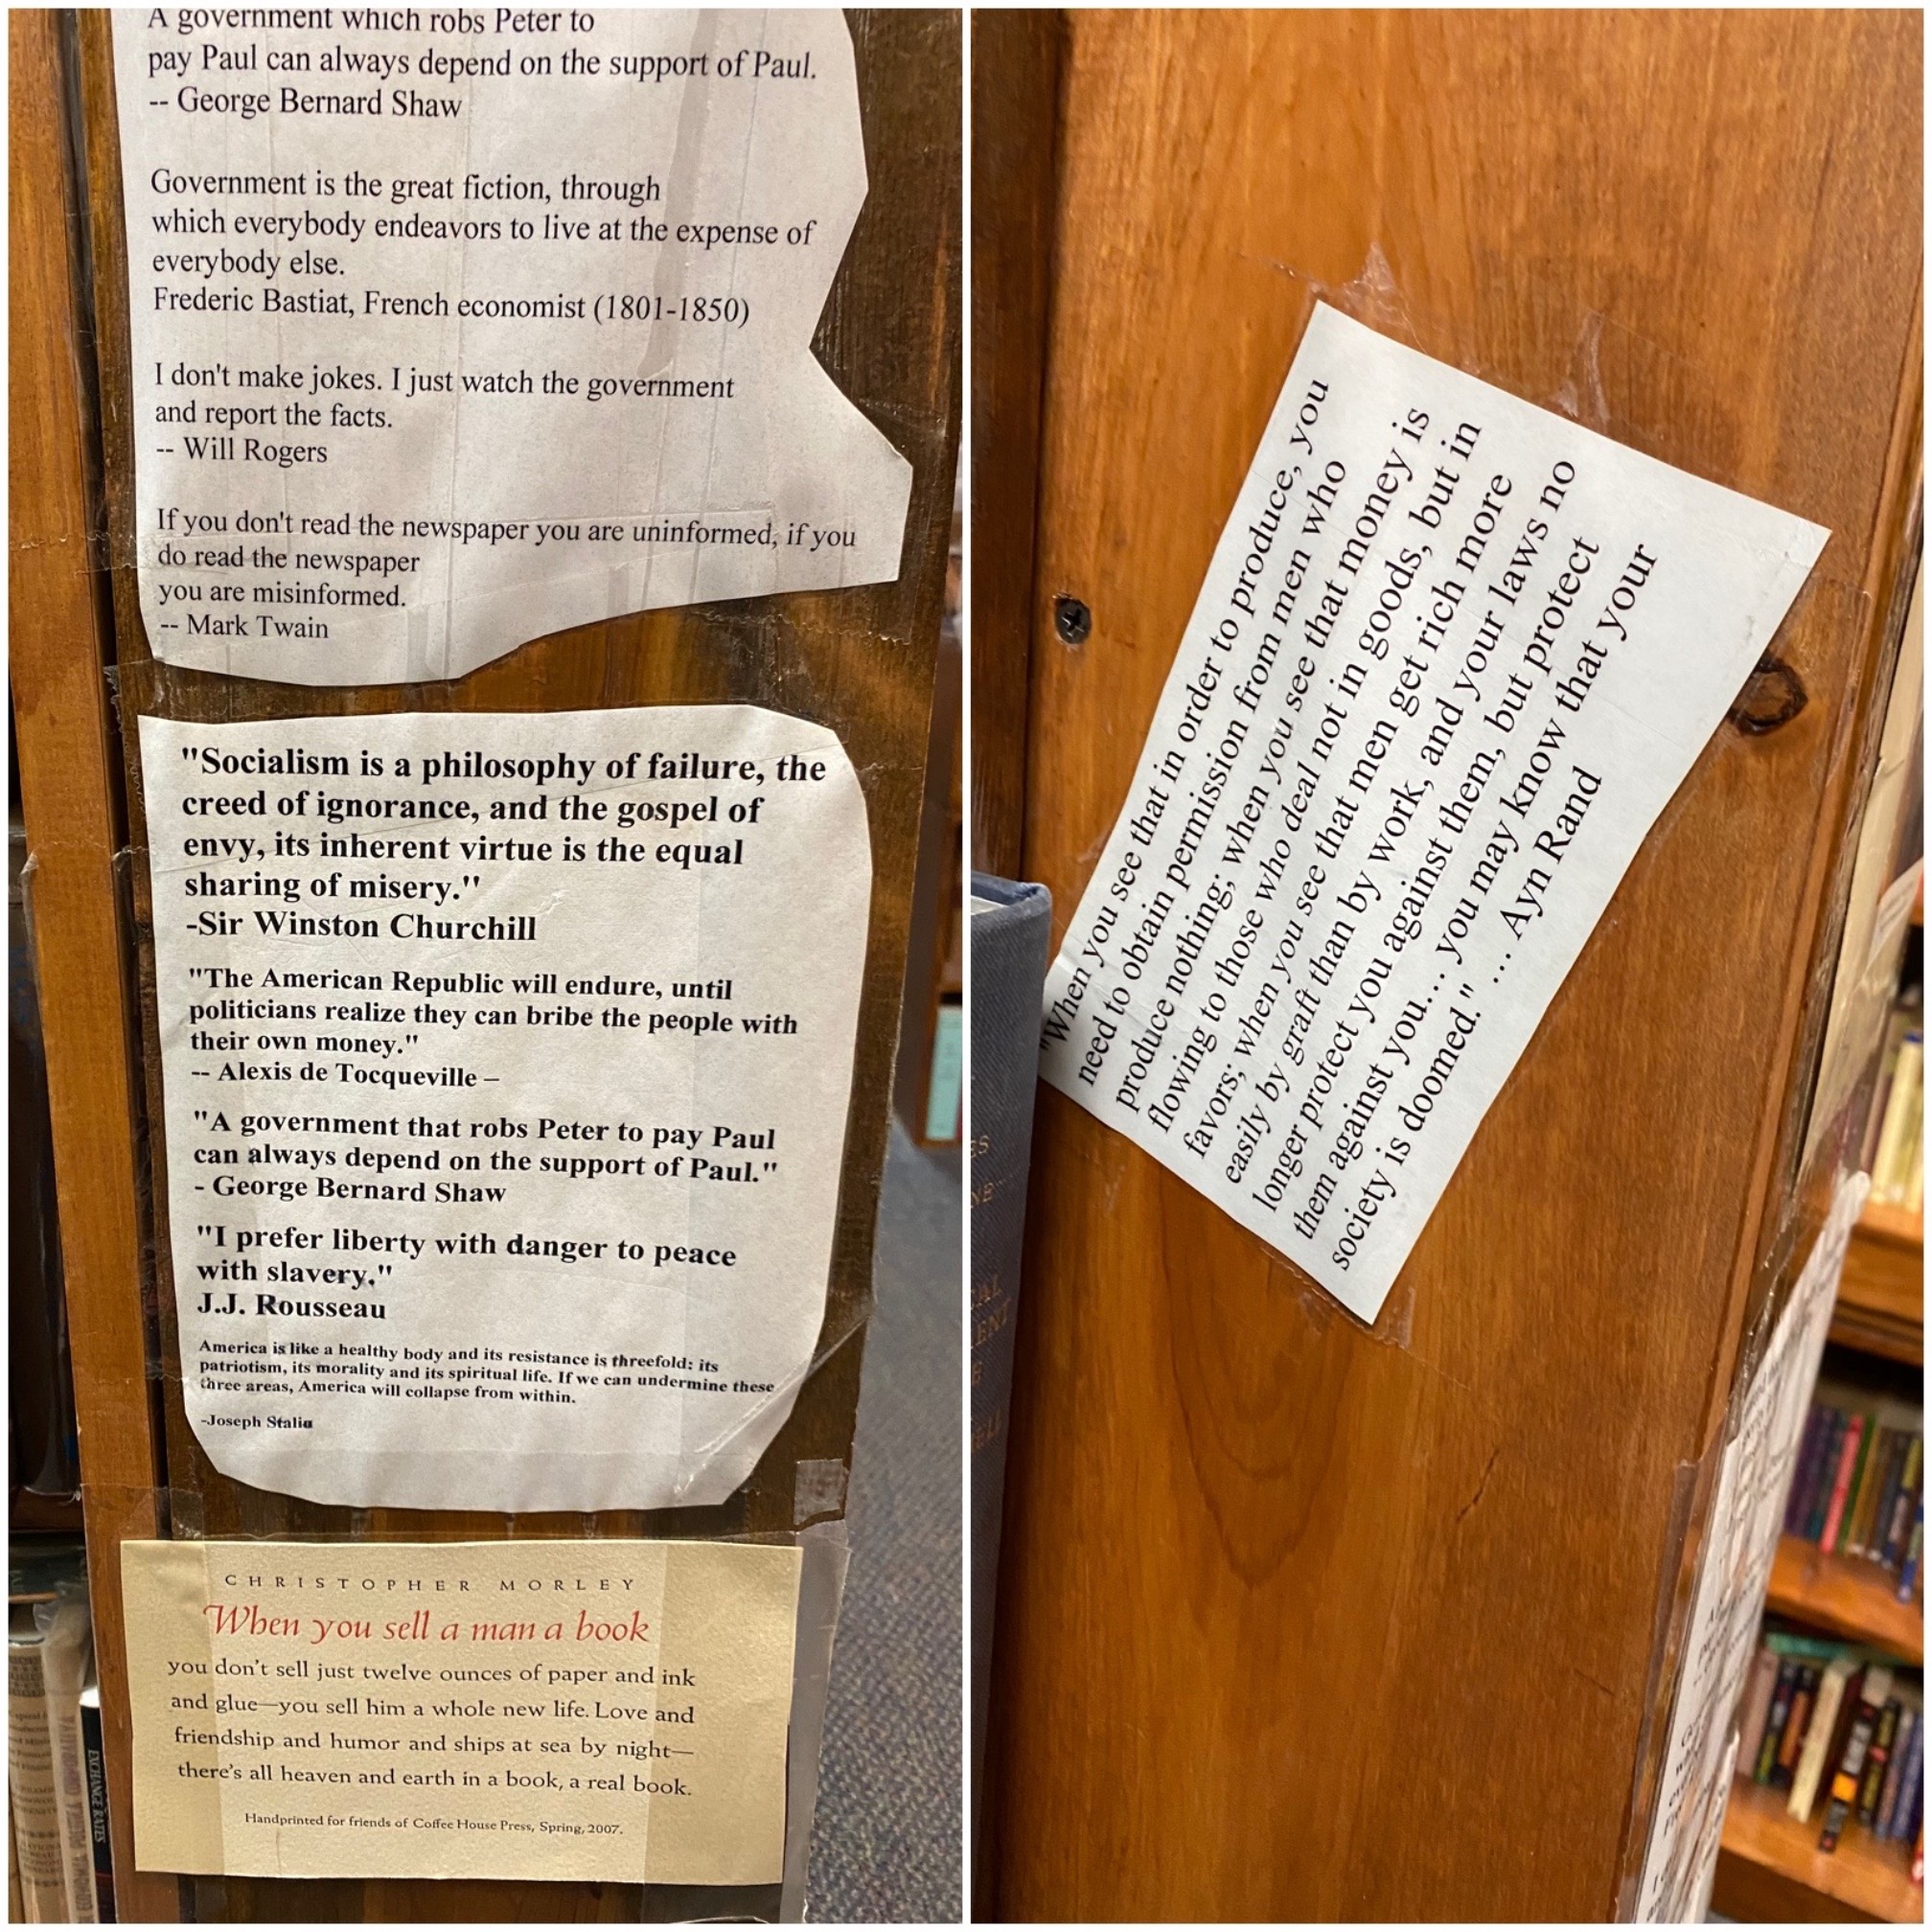 A government which robs Peter to
pay Paul can always depend on the support of Paul.
-- George Bernard Shaw
Government is the great fiction, through
which everybody endeavors to live at the expense of
everybody else.
Frederic Bastiat, French economist (1801-1850)
I don't make jokes. I just watch the government
and report the facts.
-- Will Rogers
If you don't read the newspaper you are uninformed, if you
do read the newspaper
you are misinformed.
-- Mark Twain
"Socialism is a philosophy of failure, the
creed of ignorance, and the gospel of
envy, its inherent virtue is the equal
sharing of misery."
-Sir Winston Churchill
"The American Republic will endure, until
politicians realize they can bribe the people with
their own money."
-- Alexis de Tocqueville –
"A government that robs Peter to pay Paul
can always depend on the support of Paul."
- George Bernard Shaw
"I prefer liberty with danger to peace
with slavery."
J.J. Rousseau
America is like a healthy body and its resistance is threefold: its
patriotism, its morality and its spiritual life. If we can undermine these
three areas, America will collapse from within.
-Joseph Stalin
CHRISTOPHER MORLEY
When you sell a man a book
you don't sell just twelve ounces of paper and ink
and glue—you sell him a whole new life. Love and
friendship and humor and ships at sea by night—
there's all heaven and earth in a book, a real book.
Handprinted for friends of Coffee House Press, Spring, 2007.
EXCHANGE RATES
"When you see that in order to produce, you
need to obtain permission from men who
produce nothing; when you see that money is
flowing to those who deal not in goods, but in
favors; when you see that men get rich more
easily by graft than by work, and your laws no
longer protect you against them, but protect
them against you… you may know that your
society is doomed." … Ayn Rand